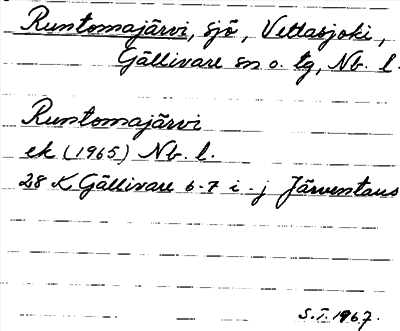 Runtomajärvi, sjö, Vettasjoki,
Gällivare sn o. tg, Nb. l.
Runtomajärvi
ek (1965) Nb. l.
28 K Gällivare 6-7 i-j Järventaus
S.T. 1967.